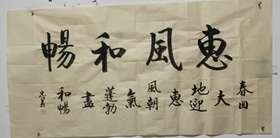 惠風和暢
春回
大
地迎
惠
風朝
氣
蓬勃
盡
和暢